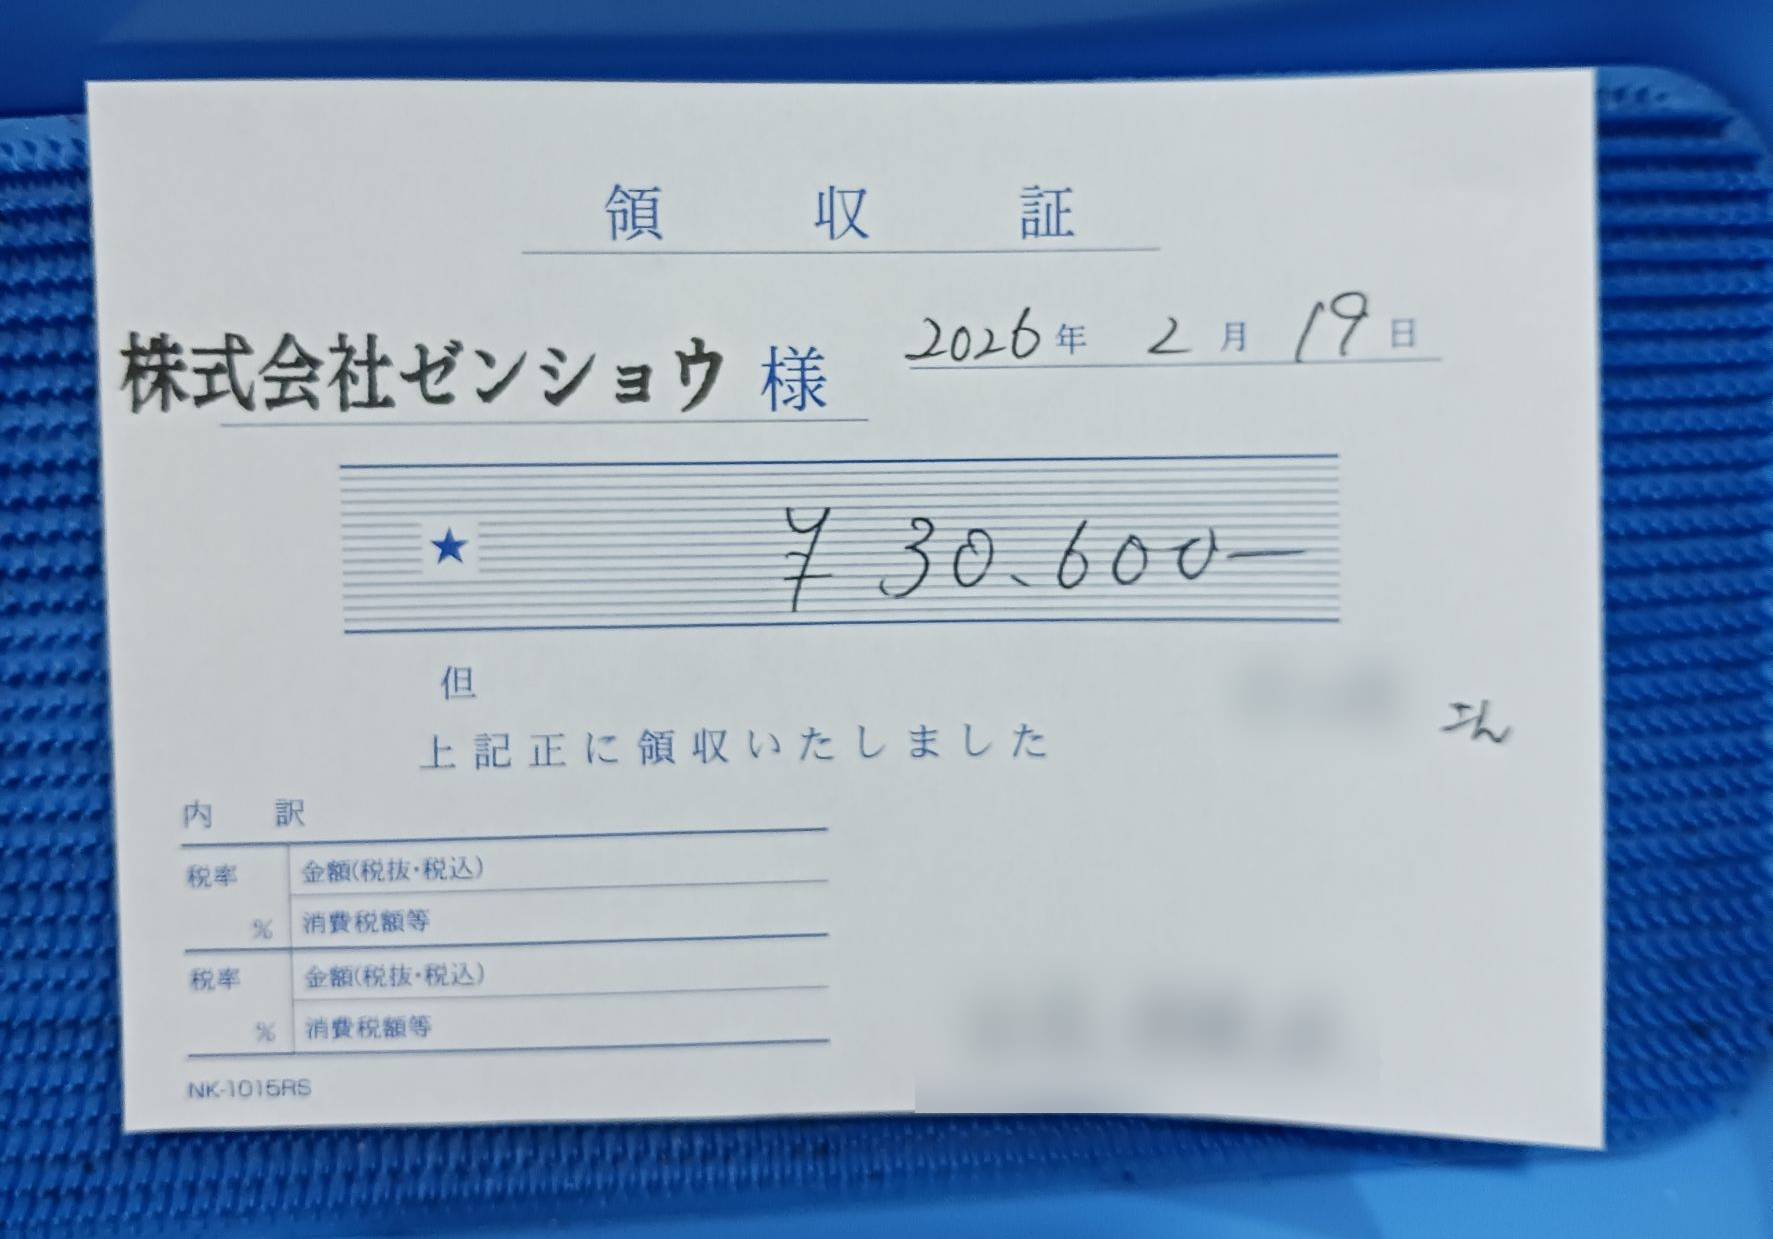 領収証
2026年 2月 19日
株式会社ゼンショウ 様
★ ¥30.600-
但
上記正に領収いたしました
内訳
税率 % 金額(税抜・税込)
消費税額等
税率 % 金額(税抜・税込)
消費税額等
NK-1015RS